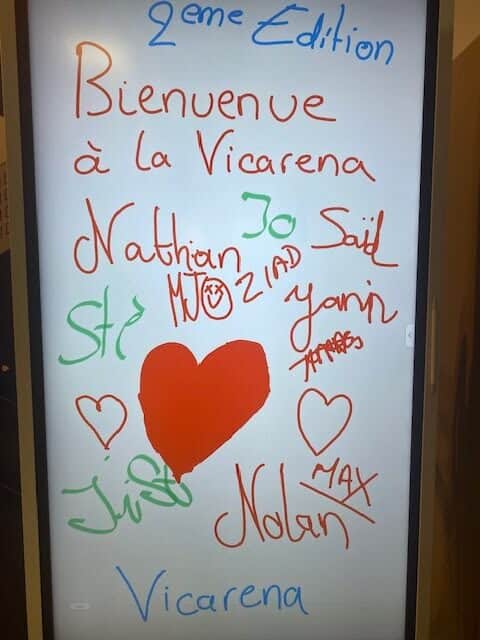 2eme Edition
Bienvenue
à la Vicarena
Nathan
Jo
Saïd
MJ
ZIAD
Yanin
Sté
Just
Nolan
MAX
Vicarena